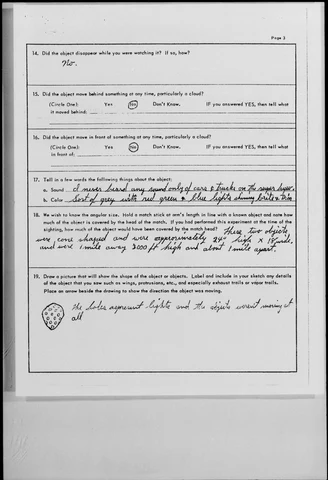 Page 3
14. Did the object disappear while you were watching it? If so, how?
No.
15. Did the object move behind something at any time, particularly a cloud?
(Circle One): Yes No Don't Know. IF you answered YES, then tell what
it moved behind:
16. Did the object move in front of something at any time, particularly a cloud?
(Circle One): Yes No Don't Know. IF you answered YES, then tell what
in front of:
17. Tell in a few words the following things about the object:
a. Sound I never heard any sound only of cars & trucks on the
b. Color Sort of grey with red green & blue lights
18. We wish to know the angular size. Hold a match stick at arm's length in line with a known object and note how
much of the object is covered by the head of the match. If you had performed this experiment at the time of the
sighting, how much of the object would have been covered by the match head? These two objects
were cone shaped and were approximately 24" high x 18" wide,
and were 1 mile away 2000 ft high and about 1 mile apart.
19. Draw a picture that will show the shape of the object or objects. Label and include in your sketch any details
of the object that you saw such as wings, protrusions, etc., and especially exhaust trails or vapor trails.
Place an arrow beside the drawing to show the direction the object was moving.
the holes represent lights and the objects weren't moving at
all